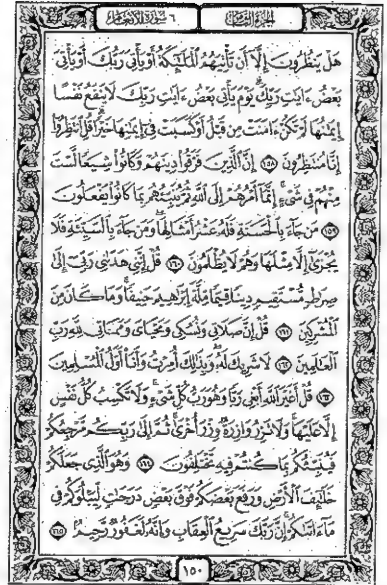 الجزء الثامن
٦ سورة الأنعام
هَلْ يَنظُرُونَ إِلَّا أَن تَأْتِيَهُمُ الْمَلَٰٓئِكَةُ أَوْ يَأْتِىَ رَبُّكَ أَوْ يَأْتِىَ
بَعْضُ ءَايَٰتِ رَبِّكَ يَوْمَ يَأْتِى بَعْضُ ءَايَٰتِ رَبِّكَ لَا يَنفَعُ نَفْسًا
إِيمَٰنُهَا لَمْ تَكُنْ ءَامَنَتْ مِن قَبْلُ أَوْ كَسَبَتْ فِىٓ إِيمَٰنِهَا خَيْرًا قُلِ ٱنتَظِرُوٓا۟
إِنَّا مُنتَظِرُونَ ١٥٨ إِنَّ ٱلَّذِينَ فَرَّقُوا۟ دِينَهُمْ وَكَانُوا۟ شِيَعًا لَّسْتَ
مِنْهُمْ فِى شَىْءٍ إِنَّمَآ أَمْرُهُمْ إِلَى ٱللَّهِ ثُمَّ يُنَبِّئُهُم بِمَا كَانُوا۟ يَفْعَلُونَ
١٥٩ مَن جَآءَ بِٱلْحَسَنَةِ فَلَهُۥ عَشْرُ أَمْثَالِهَا وَمَن جَآءَ بِٱلسَّيِّئَةِ فَلَا
يُجْزَىٰٓ إِلَّا مِثْلَهَا وَهُمْ لَا يُظْلَمُونَ ١٦٠ قُلْ إِنَّنِى هَدَىٰنِى رَبِّىٓ إِلَىٰ
صِرَٰطٍ مُّسْتَقِيمٍ دِينًا قِيَمًا مِّلَّةَ إِبْرَٰهِيمَ حَنِيفًا وَمَا كَانَ مِنَ
ٱلْمُشْرِكِينَ ١٦١ قُلْ إِنَّ صَلَاتِى وَنُسُكِى وَمَحْيَاىَ وَمَمَاتِى لِلَّهِ رَبِّ
ٱلْعَٰلَمِينَ ١٦٢ لَا شَرِيكَ لَهُۥ وَبِذَٰلِكَ أُمِرْتُ وَأَنَا۠ أَوَّلُ ٱلْمُسْلِمِينَ
١٦٣ قُلْ أَغَيْرَ ٱللَّهِ أَبْغِى رَبًّا وَهُوَ رَبُّ كُلِّ شَىْءٍ وَلَا تَكْسِبُ كُلُّ نَفْسٍ
إِلَّا عَلَيْهَا وَلَا تَزِرُ وَازِرَةٌ وِزْرَ أُخْرَىٰ ثُمَّ إِلَىٰ رَبِّكُم مَّرْجِعُكُمْ
فَيُنَبِّئُكُم بِمَا كُنتُمْ فِيهِ تَخْتَلِفُونَ ١٦٤ وَهُوَ ٱلَّذِى جَعَلَكُمْ
خَلَٰٓئِفَ ٱلْأَرْضِ وَرَفَعَ بَعْضَكُمْ فَوْقَ بَعْضٍ دَرَجَٰتٍ لِّيَبْلُوَكُمْ فِى
مَآ ءَاتَىٰكُمْ إِنَّ رَبَّكَ سَرِيعُ ٱلْعِقَابِ وَإِنَّهُۥ لَغَفُورٌ رَّحِيمٌ ١٦٥
١٥٠